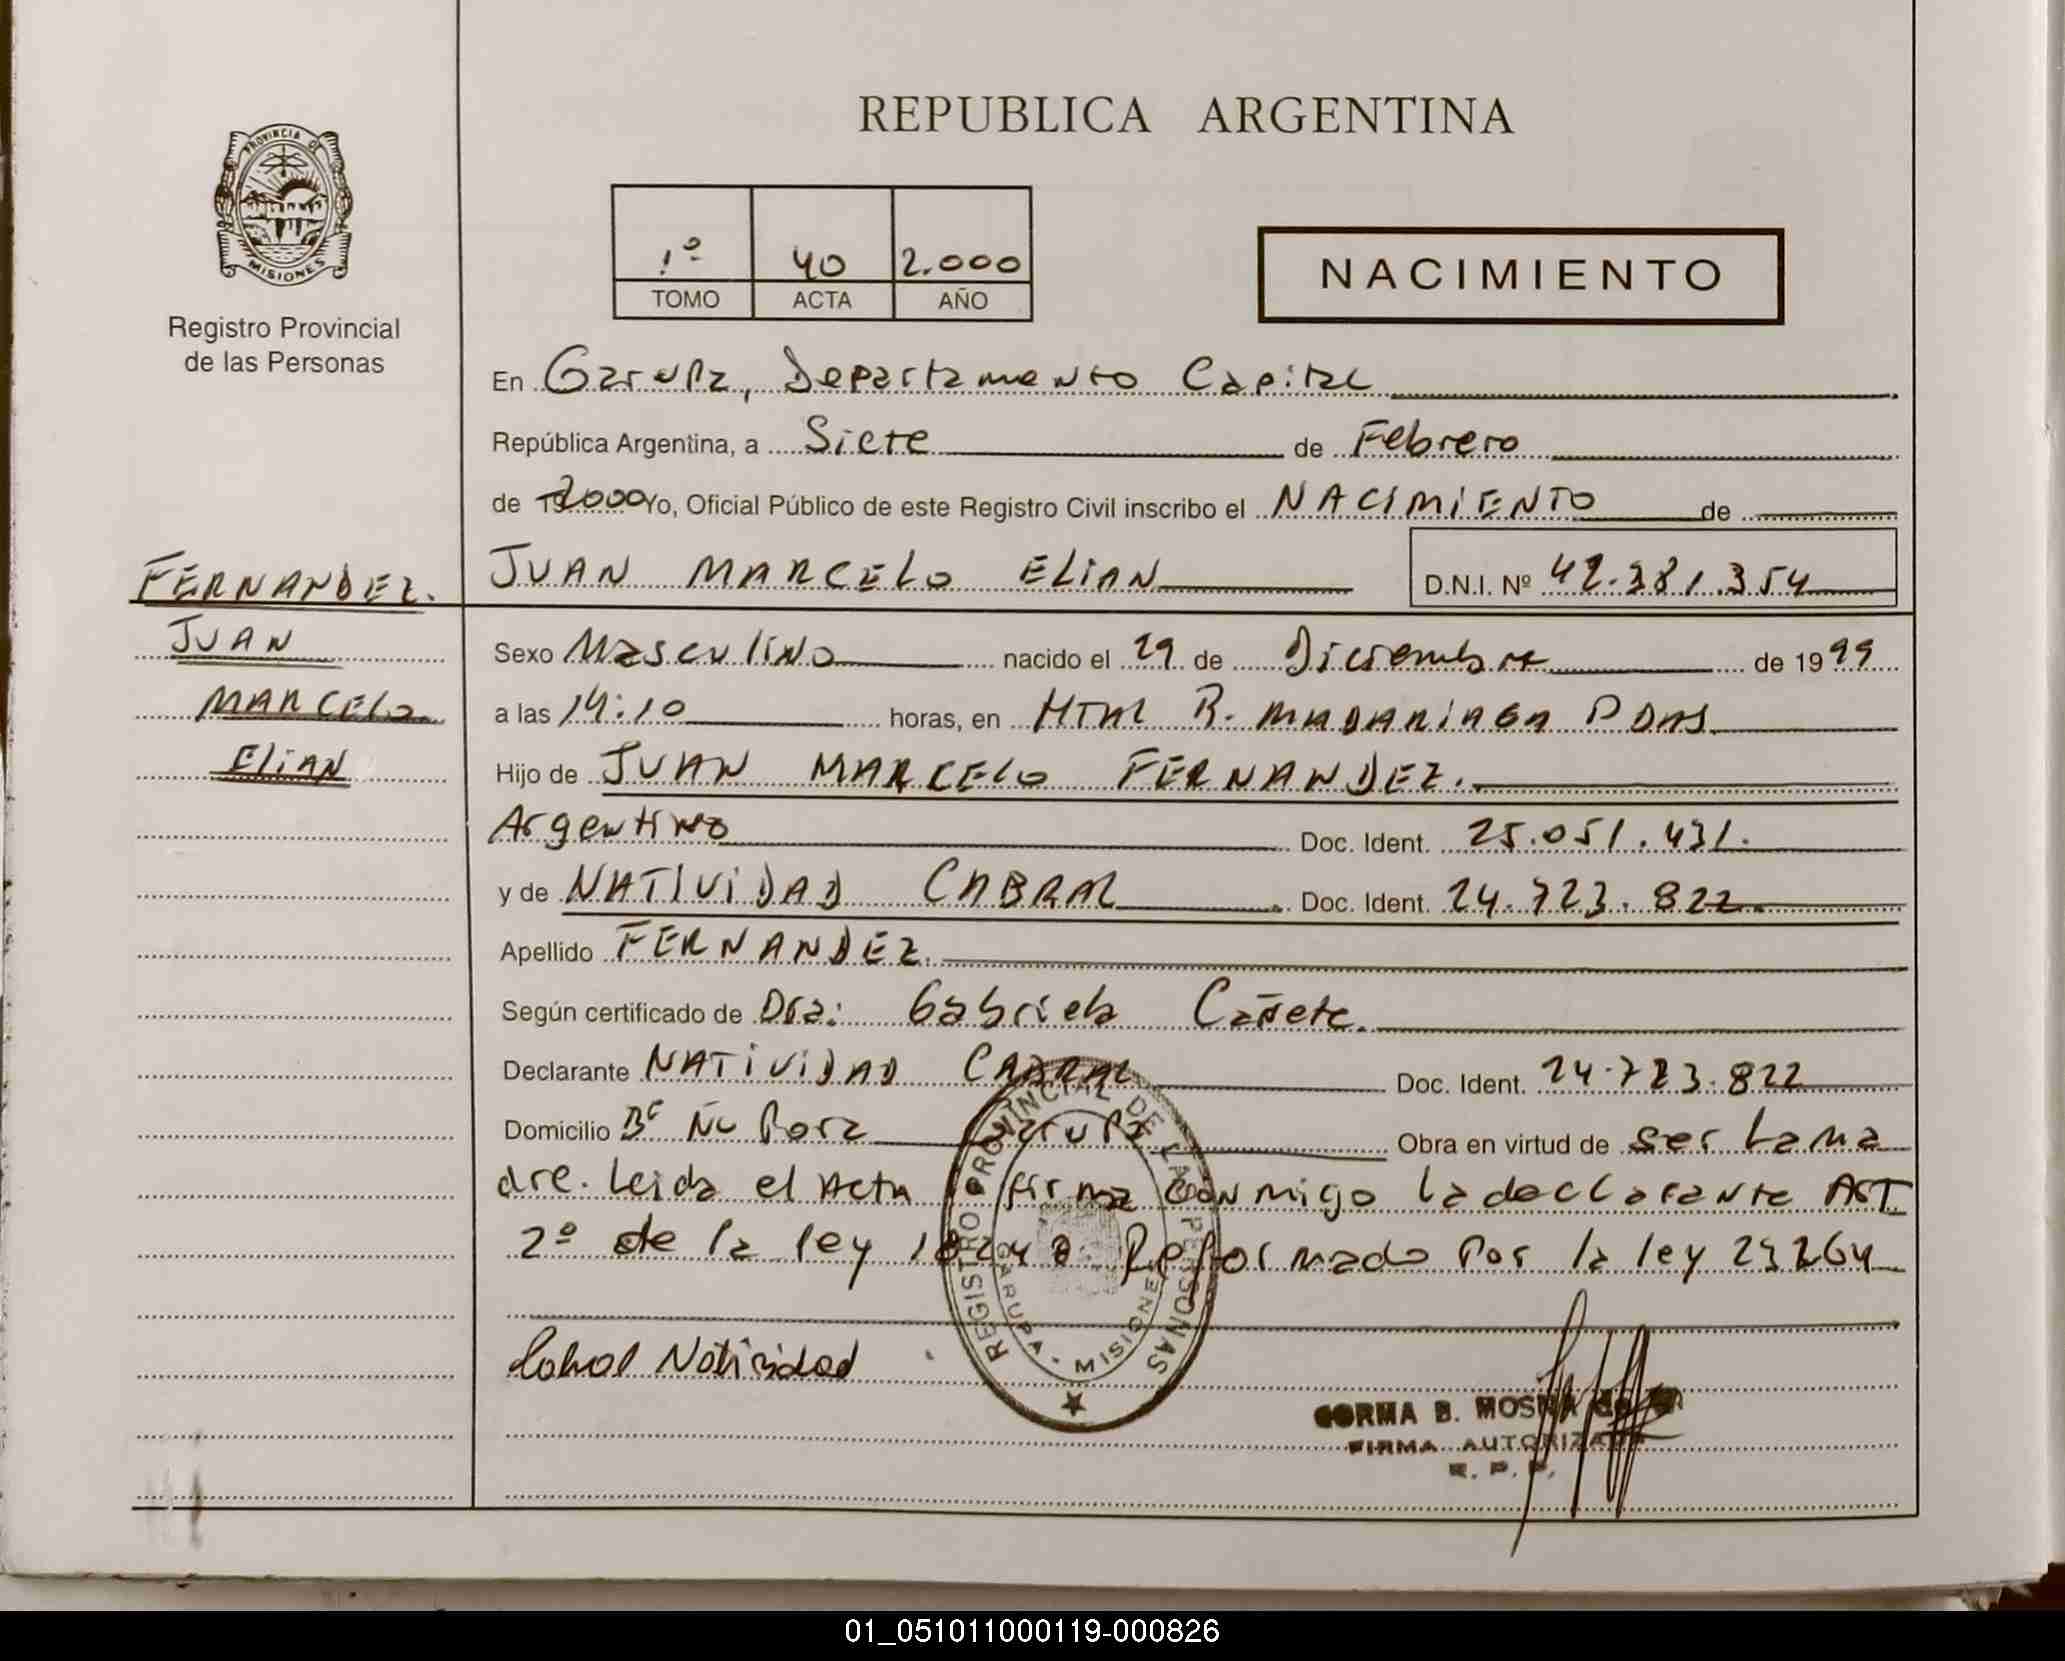 REPUBLICA ARGENTINA
PROVINCIA DE
MISIONES
Registro Provincial
de las Personas
1º 40 2.000
TOMO ACTA AÑO
NACIMIENTO
En Garupa, Departamento Capital
República Argentina, a Siete de Febrero
de 2000 Yo, Oficial Público de este Registro Civil inscribo el NACIMIENTO de
JUAN MARCELO ELIAN D.N.I. Nº 42.381.354
FERNANDEZ.
JUAN
MARCELO
ELIAN
Sexo Masculino nacido el 29 de Diciembre de 1999
a las 14:10 horas, en HTAL R. MADARIAGA PDAS.
Hijo de JUAN MARCELO FERNANDEZ.
Argentino Doc. Ident. 25.051.431.
y de NATIVIDAD CABRAL Doc. Ident. 24.723.822.
Apellido FERNANDEZ.
Según certificado de Dra: Gabriela Cañete.
Declarante NATIVIDAD CABRAL Doc. Ident. 24.723.822
Domicilio Bº Ñu Pora Garupa Obra en virtud de ser la ma
dre. Leida el Acta firma conmigo la declarante ART.
2º de la ley 18248 Reformado Por la ley 23264
Cabral Natividad
REGISTRO PROVINCIAL DE LAS PERSONAS
GARUPA - MISIONES
B.
FIRMA AUTORIZADA
R. P. P.
01_051011000119-000826